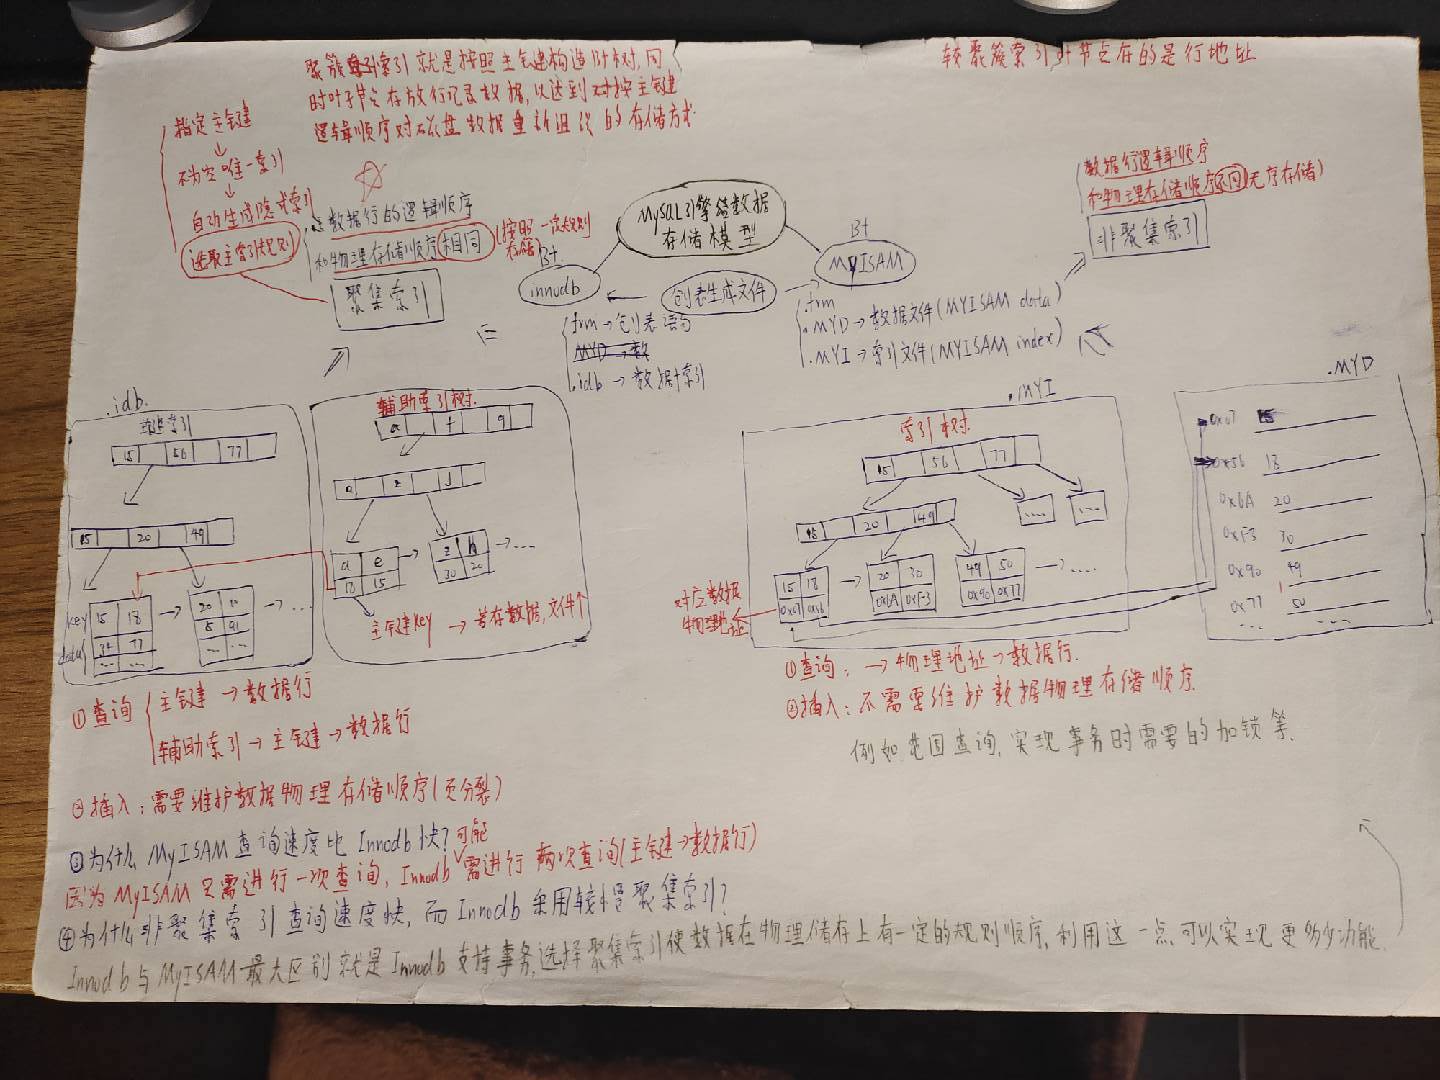 聚簇索引就是按照主键构造B+树,同
时叶子节点存放行记录数据,以达到对按主键
逻辑顺序对磁盘数据重新组织的存储方式
较聚簇索引叶节点存的是行地址
指定主键
↓
不为空唯一索引
↓
自动生成隐式索引
选取主索引规则
数据行的逻辑顺序
和物理存储顺序相同
(按照一定规则
存储)
聚集索引
MySQL引擎结数据
存储模型
B+
innodb
B+
MYISAM
创表生成文件
数据行逻辑顺序
和物理存储顺序不同(无序存储)
非聚集索引
frm→创表语句
MYD→数
.idb→数据+索引
.frm
.MYD→数据文件(MYISAM data)
.MYI→索引文件(MYISAM index)
.idb
主键索引
15 56 77
15 20 49
key 15 18
data 34 77
20 30
5 91
...
辅助索引树
a f q
a z j
a e
18 15
z h
30 20
....
主键key → 若存数据,文件个
.MYI
索引树
15 56 77
15 20 49
.... ....
15 18
0x07 0x56
20 30
0x6A 0xF3
49 50
0x90 0x77
.....
对应数据
物理地址
.MYD
0x07 15
0x56 18
0x6A 20
0xF3 30
0x90 49
0x77 50
... ....
①查询
主键→数据行
辅助索引→主键→数据行
②插入:需要维护数据物理存储顺序(页分裂)
①查询:→物理地址→数据行.
②插入:不需要维护数据物理存储顺序.
例如范围查询,实现事务时需要的加锁等.
③为什么MyISAM查询速度比Innodb快?
因为MyISAM只需进行一次查询,Innodb可能需进行两次查询(主键→数据行)
④为什么非聚集索引查询速度快,而Innodb采用较慢聚集索引?
Innodb与MyISAM最大区别就是Innodb支持事务,选择聚集索引使数据在物理储存上有一定的规则顺序,利用这一点可以实现更多功能.